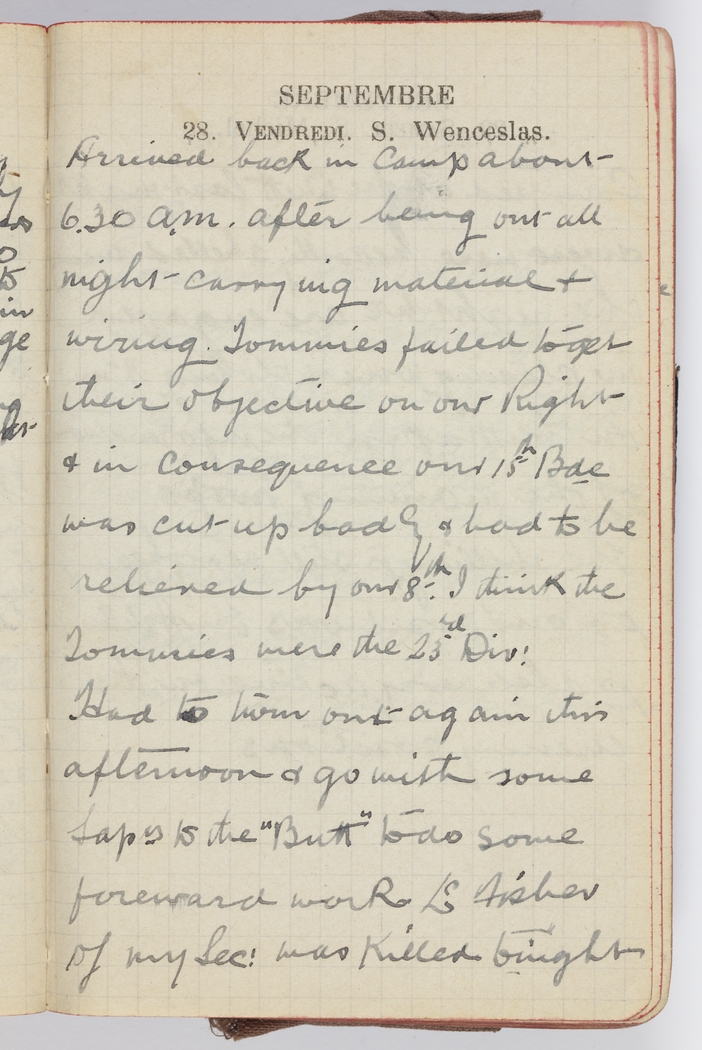 SEPTEMBRE
28. VENDREDI. S. Wenceslas.
Arrived back in camp about
6.30 a.m. after being out all
night carrying material &
wiring. Tommies failed to get
their objective on our Right
& in consequence our 15th Bde
was cut up badly & had to be
relieved by our 8th. I think the
Tommies were the 23rd Div:
Had to turn out again this
afternoon & go with some
Saps to the "Butt" to do some
foreward work Lc Fisher
of my Sec: was killed tonight